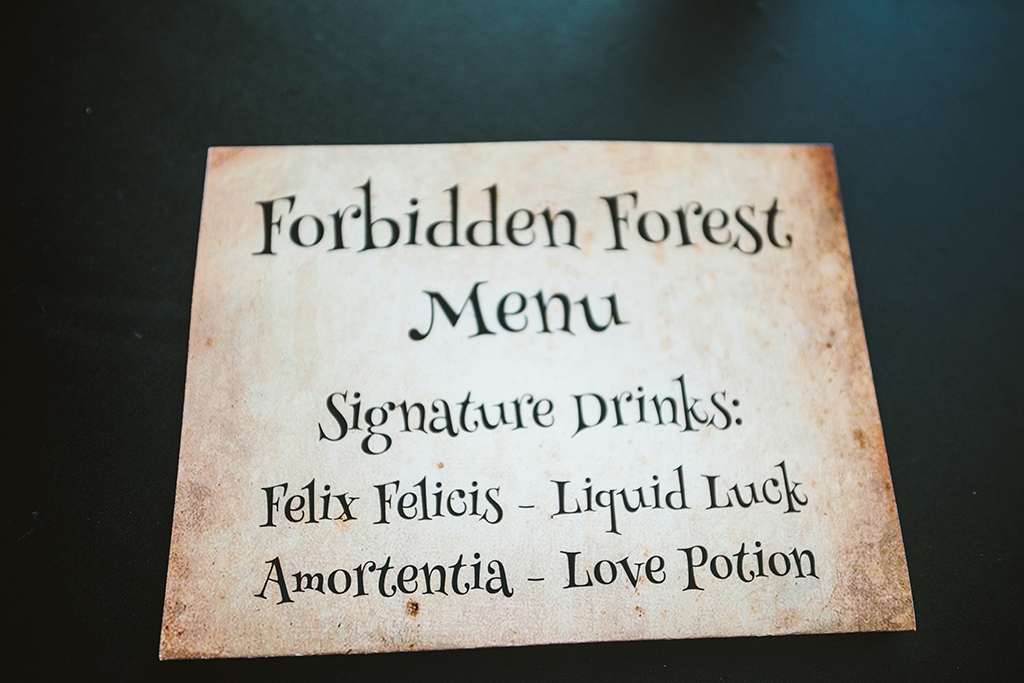 Forbidden Forest
Menu
Signature Drinks:
Felix Felicis - Liquid Luck
Amortentia - Love Potion